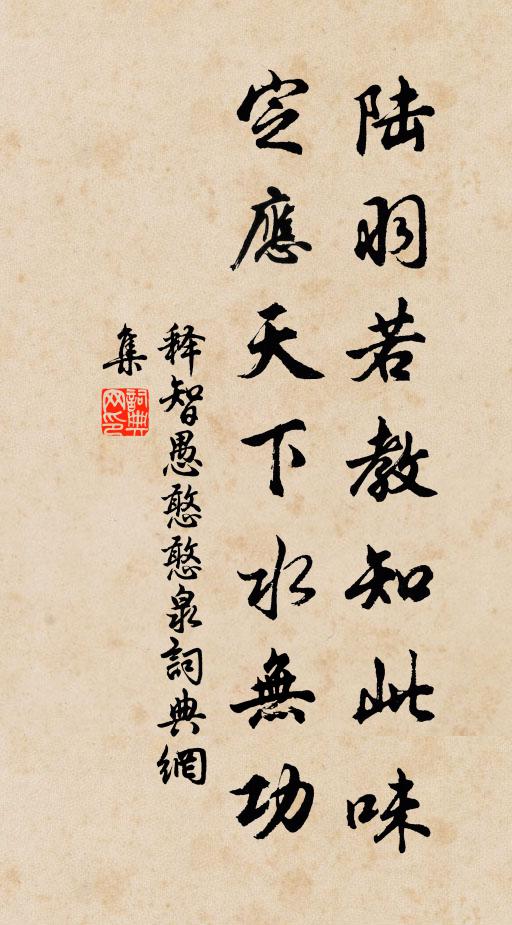 陆羽若教知此味
定應天下水無功
释智愚憨憨泉詞典網
集
詞典
网印